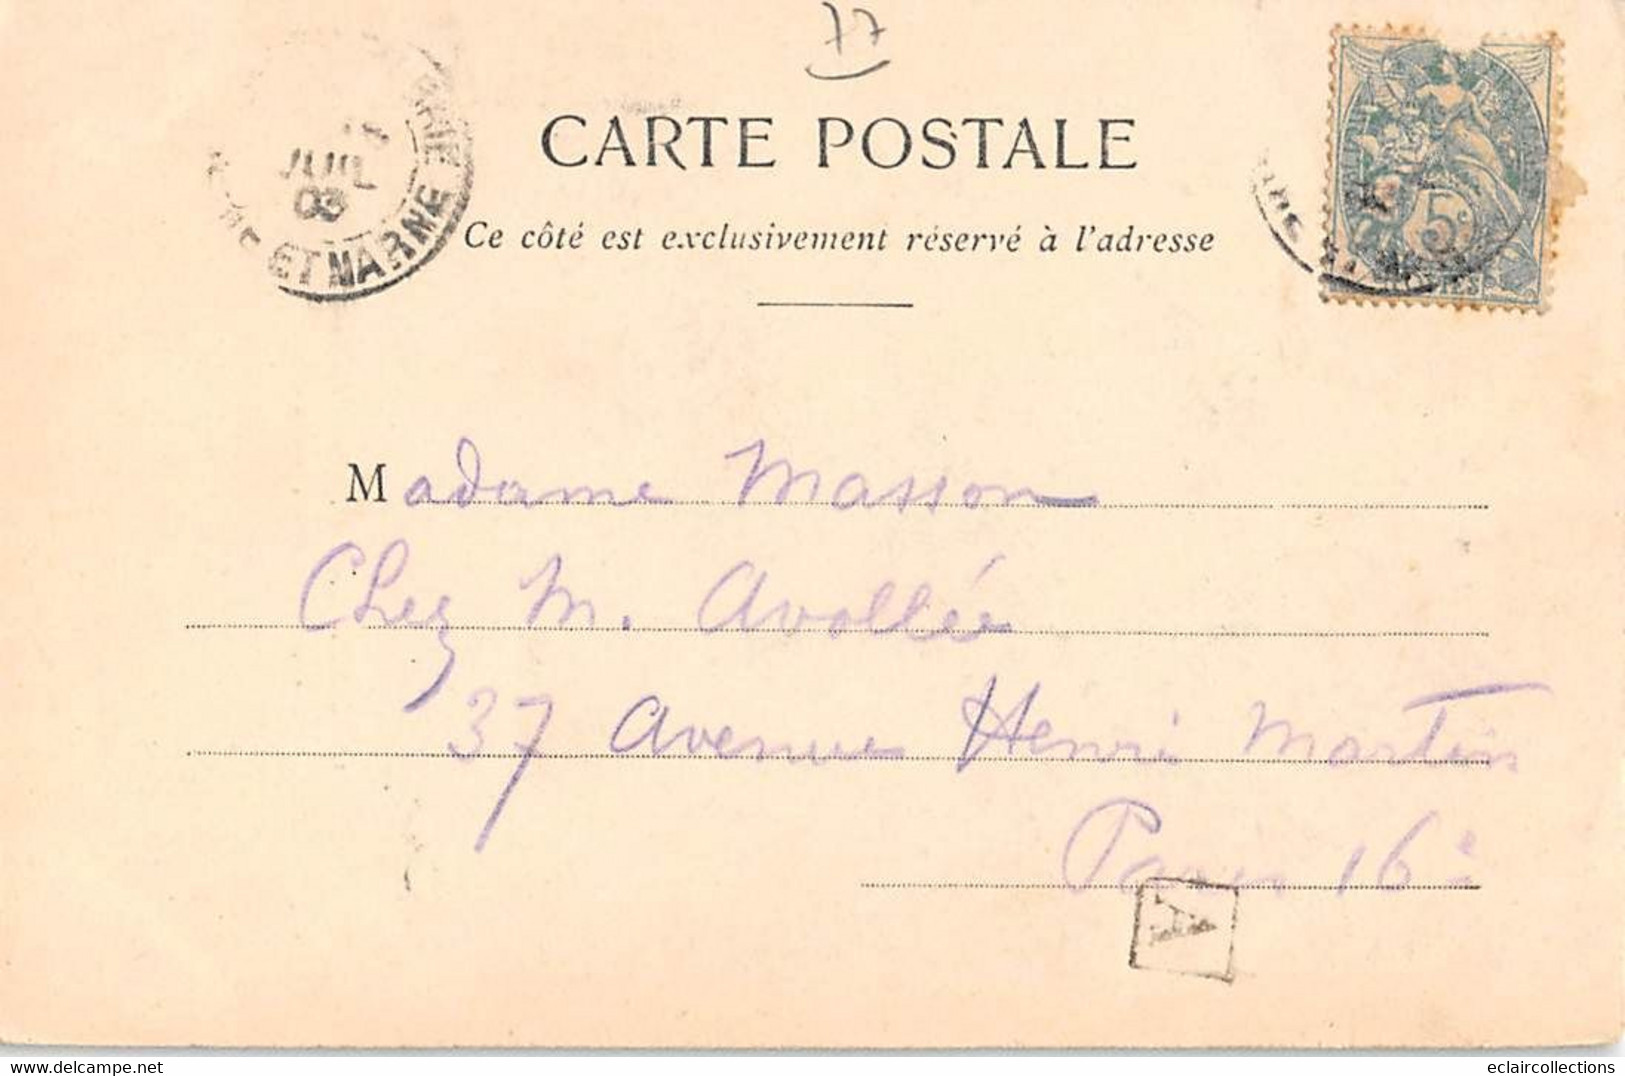 77
CARTE POSTALE
Ce côté est exclusivement réservé à l'adresse
JUIL
03
ET MARNE
5c
Madame Masson
Chez M. Avollée
37 Avenue Henri Martin
Paris 16e
A
eclaircollections